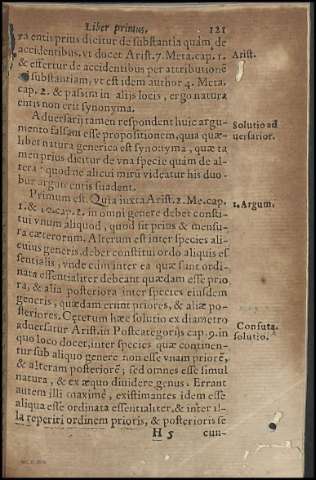 Liber primus. 121
ra entis prius dicitur de substantia quàm, de
accidentibus, vt docet Arist. 7. Meta. cap. 1. Arist.
& effertur de accidentibus per attributionẽ
substantiam, vt est idem author 4. Meta.
cap. 2. & passim in alijs locis, ergo natura
entis non erit synonyma.
Aduersarij tamen respondent huic argu-
mento falsam esse propositionem, quia quæ- Solutio ad
libet natura generica est synonyma, quæ ta uersarior.
men prius dicitur de vna specie quàm de al-
tera: quod ne alicui mirũ videatur his duo
bus argumentis suadent.
Primum est. Quia iuxta Arist. 2. Me. cap. 1. Argum.
1. & 10. cap. 2. in omni genere debet consti-
tui vnum aliquod, quod sit prius & mensu-
ra cæterorum. Alterum est inter species ali-
cuius generis, debet constitui ordo aliquis es
sentialis, vnde cùm inter ea quæ sunt ordi-
nata essentialiter debeant quædam esse prio
ra, & alia posteriora inter species eiusdem
generis, quædam erunt priores, & aliæ po-
steriores. Cęterum hæc solutio ex diametro
aduersatur Arist. in Postcategorijs cap. 9. in Confuta.
quo loco docet, inter species quæ continen- solutio.
tur sub aliquo genere non esse vnam priorẽ,
& alteram posteriorẽ; sed omnes esse simul
natura, & ex æquo diuidere genus. Errant
autem illi maximè, existimantes idem esse
aliqua esse ordinata essentialiter, & inter il-
la reperiri ordinem prioris, & posterioris se
H 5 cun-